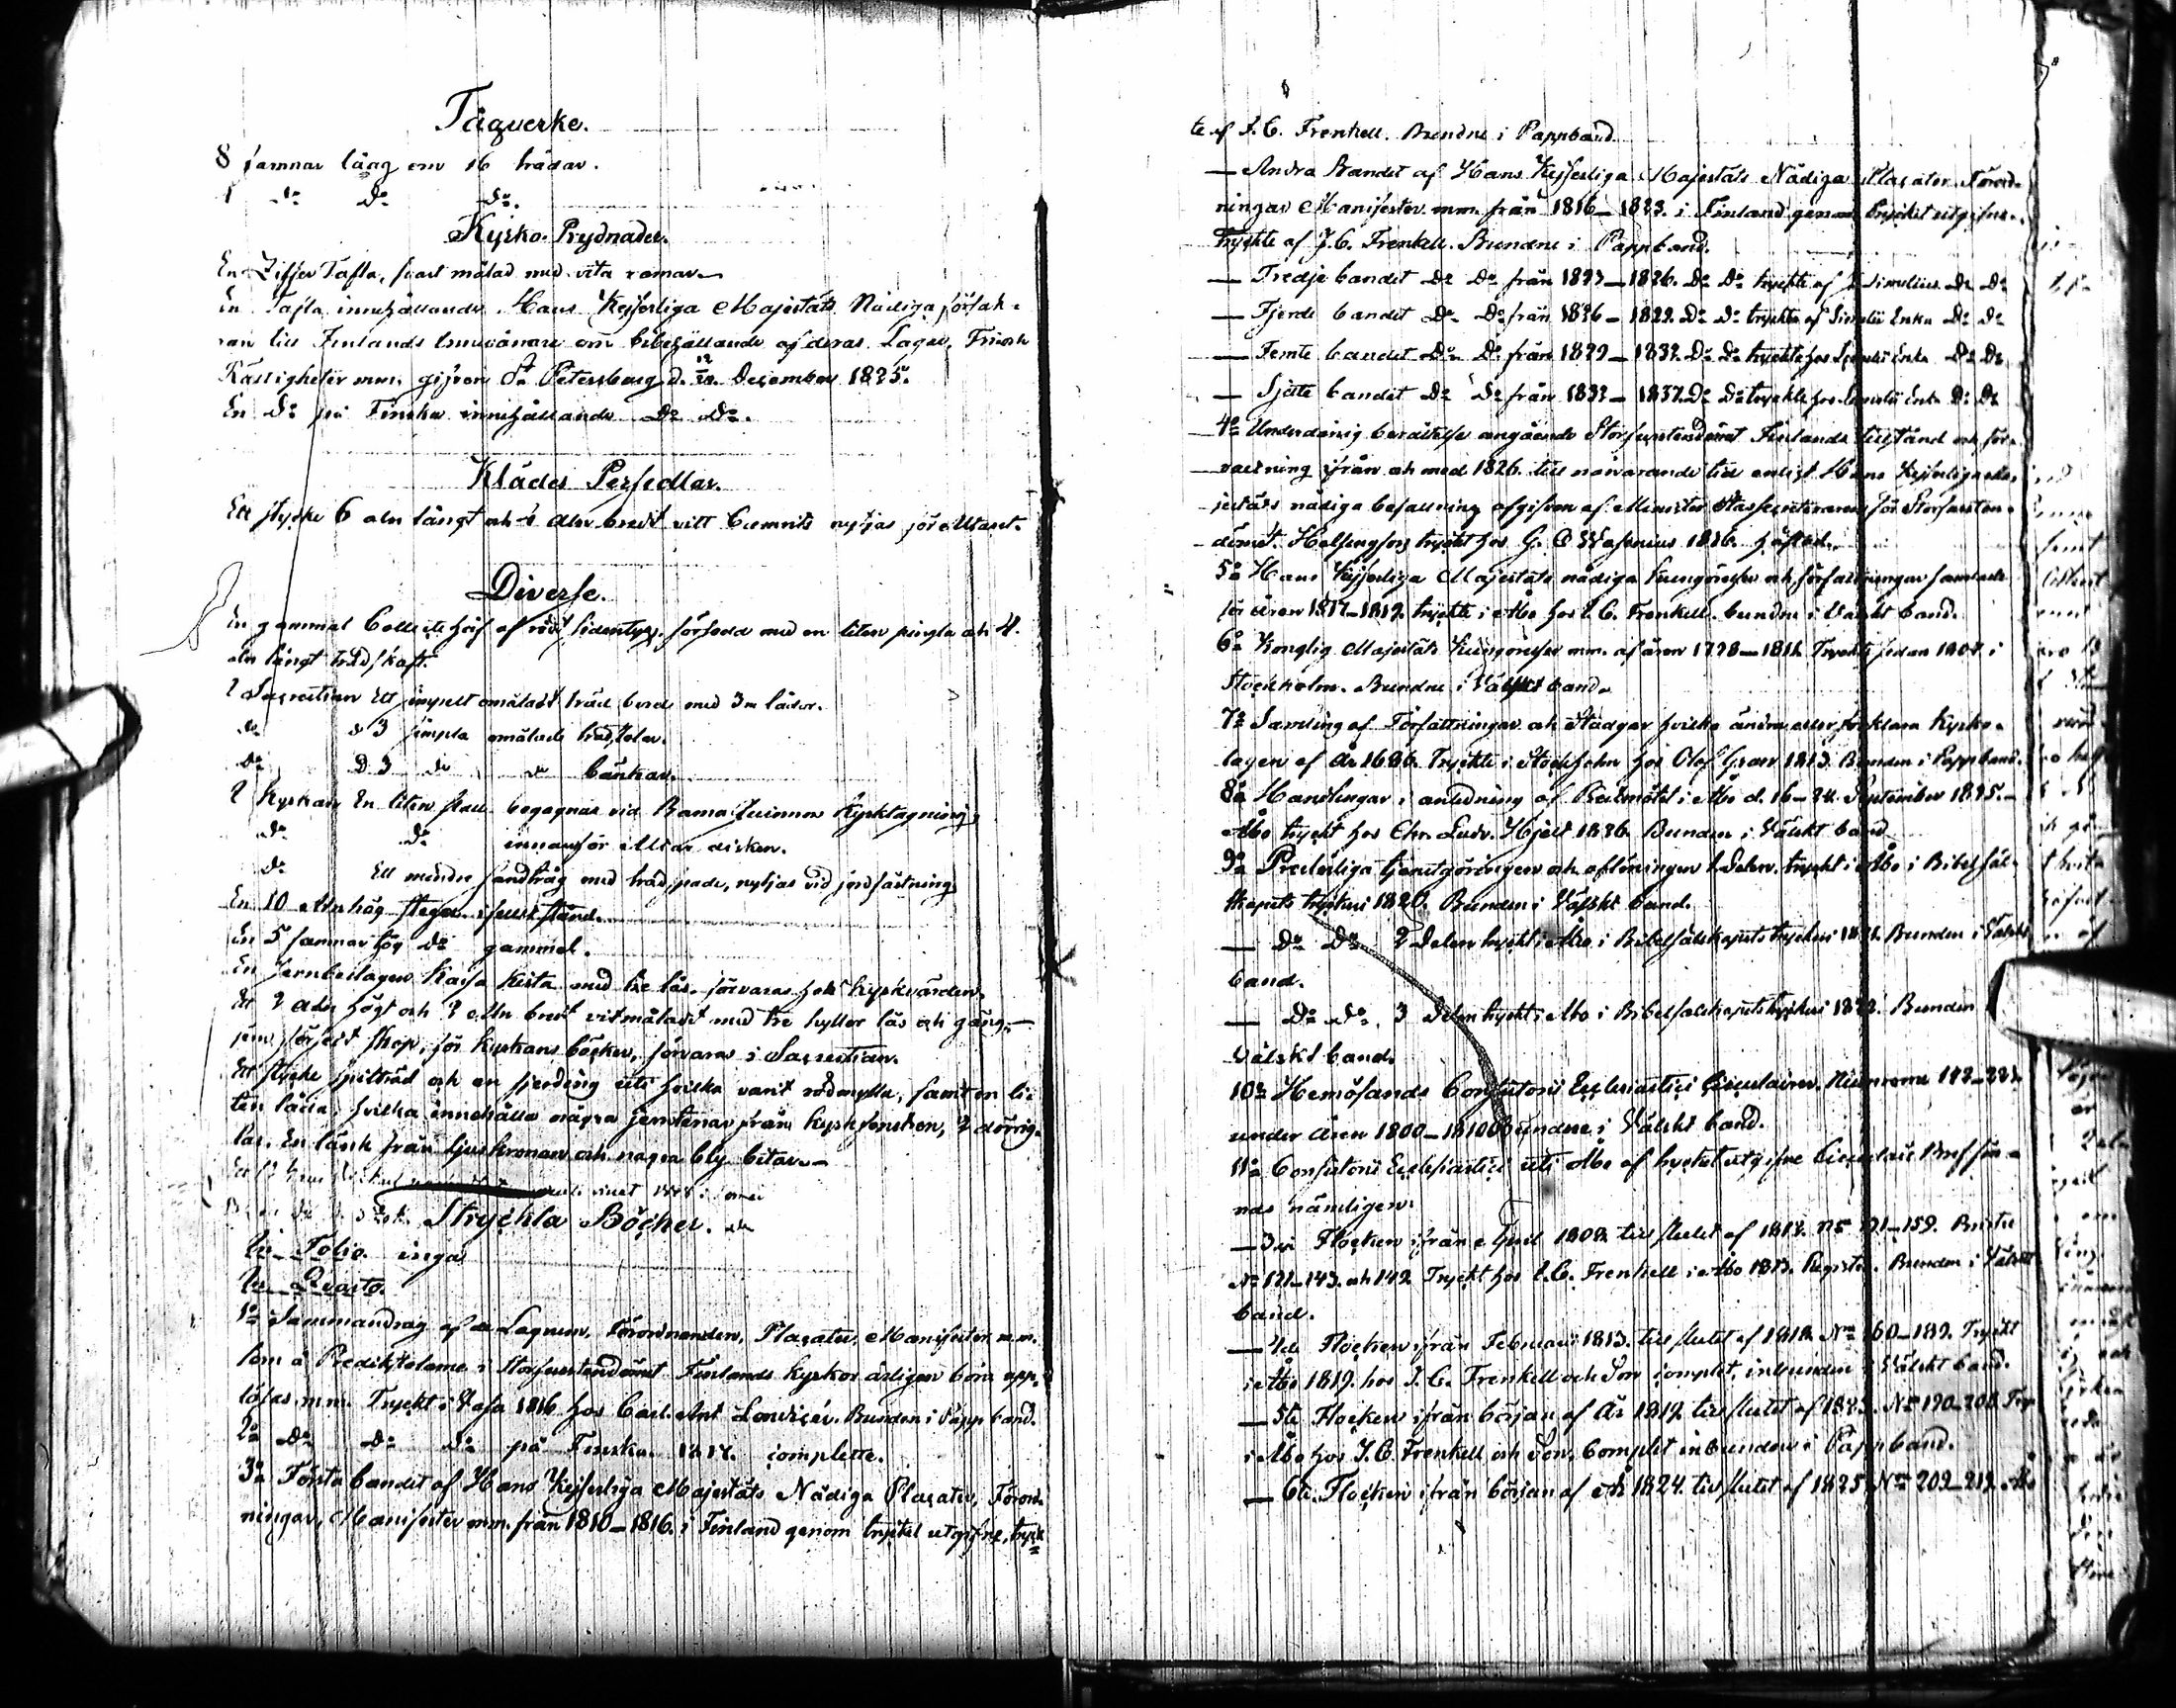 Tågverke.
8 famnar lång om 16 trådar.
1 Do Do Do.
Kyrko-Prydnader.
En Ziffer Tafla, svart målad med vita ramar
En Tafla innehållande Hans Kejserliga Majestäts Nådiga försäk-
ran till Finlands Innevånare om bibehållande af deras Lagar, Fri och
Rättigheter mm. gifven St Petersburg d. 12/24 December 1825.
En Do på Finska innehållande Do Do.
Klädes Persedlar.
Ett stycke 6 aln långt och aln bredt vitt nyttjas för Altaret.
Diverse.
En gammal Collecte håf af rödt sidentyg, försedd med en liten pingla och 4
aln långt trädskaft.
I Sacristian Ett simpelt omåladt träd bord med 3ne lådor.
Do Do 3 simpla omålade trädstolar.
Do D 3 do do bänkar.
I Kyrkan En liten pall begagnas vid Barna qvinnors Kyrktagning
Do Do innanför Altar disken.
Do Ett mindre sandtråg med träd spade, nyttjas vid jordfästning
En 10 aln hög stege i fullt stånd.
En 5 famnar hög Do gammal.
En Jernbeslagen Kassa Kista med tre lås förvaras hos Kyrkvärden.
Ett 2 aln högt och 2 aln bredt vitmåladt med tre hyllor lås och gång-
jern försedt skåp, för Kyrkans böcker, förvaras i Sacristian.
Ett stycke spiltråd och en fjerding uti hvilka varit rödmylla, samt en li-
ten låda, hvilka innehålla några jernstänar från kyrkfönstren, 2 dörrig-
lar. En länk från ljuskronan och några bly bitar.
Ett
Tryckta Böcker.
In Folio inga
In Quarto.
1o Sammandrag af de Lagrum, Förordnanden, Placater, Manifester m.m.
som å Predikstolarne i Storfurstendömet Finlands Kyrkor årligen böra upp-
läsas, mm. Tryckt i Vasa 1816 hos Carl Ant Londicér. Bunden i Papp band.
2o Do Do Do på Finska. 1817. complette.
3o Första bandet af Hans Kejserliga Majestäts Nådiga Placater, Förord-
ningar, Manifester mm. från 1810–1816. i Finland genom trycket utgifne, tryck-
te af J. C. Frenkell. Bundne i Pappband.
— Andra Bandet af Hans Kejserliga Majestäts Nådiga Placater Förord-
ningar Manifester mm. från 1816–1823. i Finland genom trycket utgifne.
tryckte af J. C. Frenkell. Bundne i Pappband.
— Tredje bandet Do Do från 1823–1826. Do Do tryckte af J Simelius Do Do
— Fjerde bandet Do Do från 1826–1829. Do Do tryckte af Simelii Enka Do Do
— Femte bandet Do Do från 1829–1832. Do Do tryckte hos Simelii Enka Do Do
— Sjette bandet Do Do från 1832–1837. Do Do tryckte hos Simelii Enka Do Do
4o Underdånig berättelse angående Storfurstendömet Finlands tillstånd och för-
valtning ifrån och med 1826. till närvarande tid enligt Hans Kejserliga Ma-
jestäts nådiga befallning afgifven af Minister Statssecreteraren för Storfursten-
dömet. Helsingfors tryckt hos G. O Wasenius 1836. häftad.
5o Hans Kejserliga Majestäts nådiga Kungörelser och författningar samlade
för åren 1817–1819. tryckte i Åbo hos J. C. Frenkell. bundne i Välskt band.
6o Konglig Majestäts Kungörelser mm. af åren 1798–1811. Tryckte sedan 1808 i
Stockholm. Bundne i Välskt band.
7o Samling af Författningar och Stadgar hvilka ändra eller förklara Kyrko-
lagen af År 1686. Tryckte i Stockholm hos Olof Gran 1813. Bunden i Pappband.
8o Handlingar i anledning af Prestmötet i Åbo d. 16–24. September 1825.
Åbo tryckt hos Chr. Ludv. Hjelt 1826. Bunden i Välskt band
9o Presterliga tjenstgöringen och aflöningen 1 Delen. tryckt i Åbo i Bibelsäl-
skapets tryckeri 1820. Bunden i Välskt band.
— Do Do 2 Delen tryckt i Åbo i Bibelsälskapets tryckeri 1821. Bunden i Välskt
band.
— Do Do. 3 Delen tryckt i Åbo i Bibelsälskapets tryckeri 1822. Bunden
Välskt band.
10o Hernösands Consistorii Ecclesiastici Circulairer. Nummrorne 142–221.
under åren 1800–1810 Bundne i Välskt band.
11o Consistorii Ecclesiastici uti Åbo af trycket utgifne Circulair Bref fin-
nas nämligen:
— 3die Flocken ifrån April 1808 till slutet af 1812. No 121–159. Brister
No 121–143. och 149. Tryckt hos J. C. Frenkell i Åbo 1813. Register. Bunden i Välskt
band.
— 4de Flocken ifrån Februari 1813. till slutet af 1818. No 160–189. Tryckt
i Åbo 1819. hos J. C. Frenkell och Son complet, inbunden i Välskt band.
— 5te Flocken ifrån början af År 1819. till slutet af 1823. No 190–208 Tryckt
i Åbo hos J. C. Frenkell och Son. Complet inbunden i Pappband.
— 6te Flocken ifrån början af År 1824. till slutet af 1825 No 209–219. Åbo